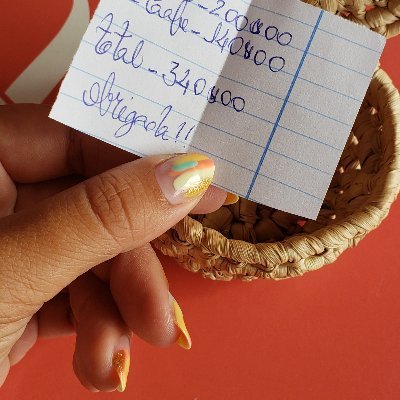 - 200$00
- 140$00
Total - 340$00
Obrigada!!